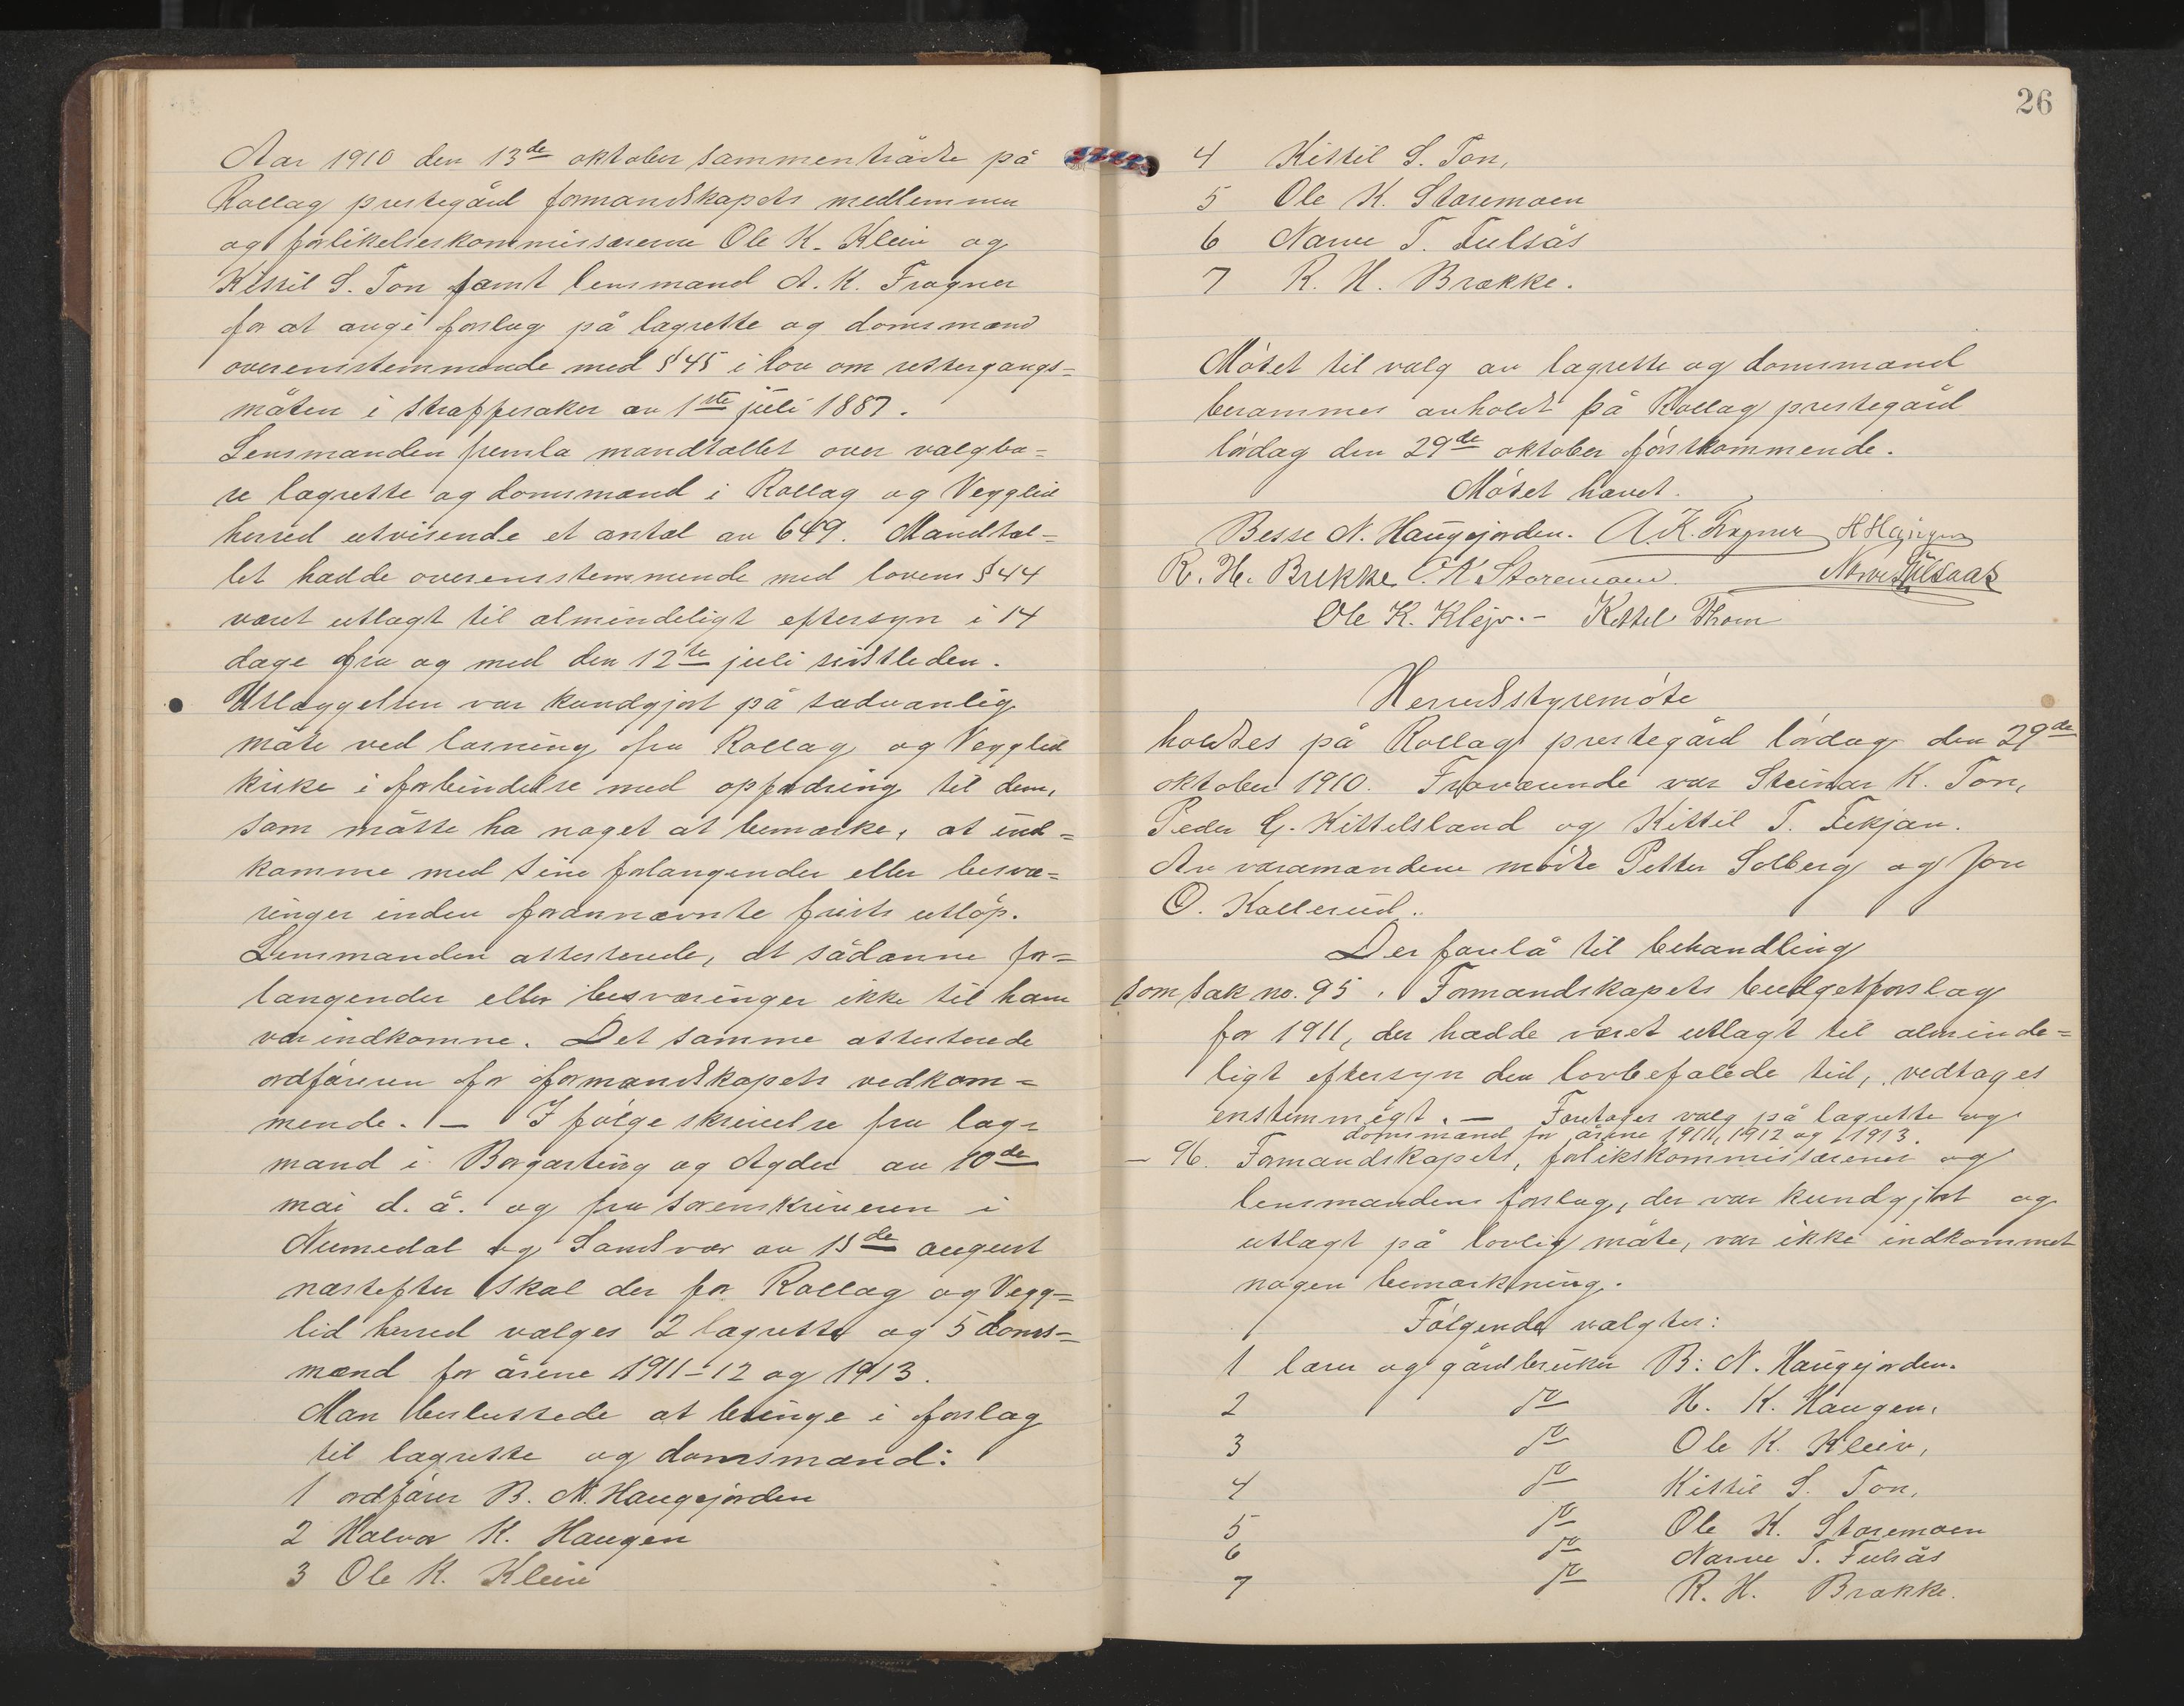 Aar 1910 den 13de oktober sammentrådte på
Rollag prestegård formandskapets medlemmer
og forlikelseskommissærerne Ole K. Kleiv og
Kittil S. Ton samt lensmand A. K. Fragner
for at angi forslag på lagrette og domsmænd
overensstemmende med § 45 i lov om rettergangs-
måten i straffesaker av 1ste juli 1887.
Lensmanden fremla mandtallet over valgba-
re lagrette og domsmænd i Rollag og Vegglid
herred utvisende et antal av 649. Mandtal-
let hadde overensstemmende med lovens § 44
været utlagt til almindeligt eftersyn i 14
dage fra og med den 12te juli sistleden.
Utlæggelsen var kundgjort på sædvanlig
måte ved læsning fra Rollag og Vegglid
kirke i forbindelse med opfodring til dem,
som måtte ha noget at bemærke, at ind-
komme med sine forlangender eller besvæ-
ringer inden forannævnte frists utløp.
Lensmanden attesterede, at sådanne for-
langender eller besværinger ikke til ham
var indkomne. Det samme attesterede
ordføreren for formandskapets vedkom-
mende. — I følge skrivelse fra lag-
mand i Borgarting og Agder av 10de
mai d. å. og fra sorenskriveren i
Numedal og Sandsvær av 15de august
næstefter skal der for Rollag og Vegg-
lid herred vælges 2 lagrette og 5 doms-
mænd for årene 1911-12 og 1913.
Man besluttede at bringe i forslag
til lagrette og domsmænd:
1 ordfører B. N. Haugejorden
2 Halvor K. Haugen
3 Ole K. Kleiv
26
4 Kittil S. Ton,
5 Ole K. Storemoen
6 Narve T. Fulsås
7 R. H. Brække.
Møtet til valg av lagrette og domsmænd
berammes avholdt på Rollag prestegård
lørdag den 29de oktober førstkommende.
Møtet hævet.
Besse N. Haugejorden. A. K. Fragner H Haugen
R. H. Brekke O. K Storemoen. Narve Fulsaas
Ole K. Klejv. - Kittel Thon
Herredsstyremøte
holdtes på Rollag prestegård lørdag den 29de
oktober 1910. Fraværende var Steinar K. Ton,
Peder G. Kittelsland og Kittil T. Fekjan.
Av varamændene mødte Petter Solberg og Jon
O. Kollerud.
Der forelå til behandling
som sak no. 95. Formandskapets budgetforslag
for 1911, der hadde været utlagt til alminde-
ligt eftersyn den lovbefalede tid, vedtages
enstemmigt. — Foretages valg på lagrette og
domsmænd for årene 1911, 1912 og 1913.
— 96. Formandskapets, forlikskommissærenes og
lensmandens forslag, der var kundgjort og
utlagt på lovlig måte, var ikke indkommet
nogen bemærkning.
Følgende valgtes:
1 lærer og gårdbruker B. N. Haugejorden.
2 do H. K. Haugen.
3 do Ole K. Kleiv,
4 do Kittil S. Ton,
5 do Ole K. Storemoen
6 do Narve T. Fulsås
7 do R. H. Brække.